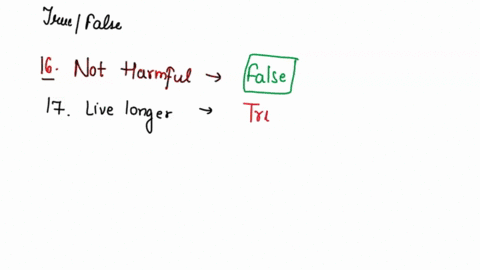 True/False
16. Not Harmful → False
17. Live longer → Tru